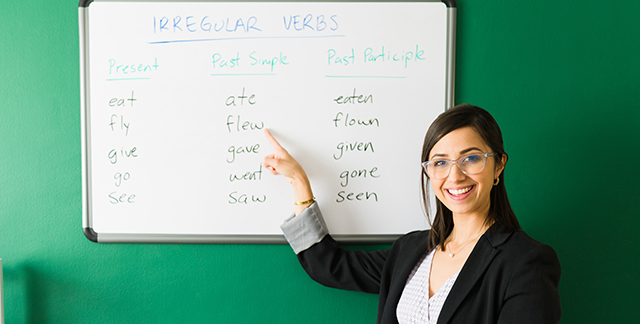 IRREGULAR VERBS
Present Past Simple Past Participle
eat ate eaten
fly flew flown
give gave given
go went gone
see saw seen